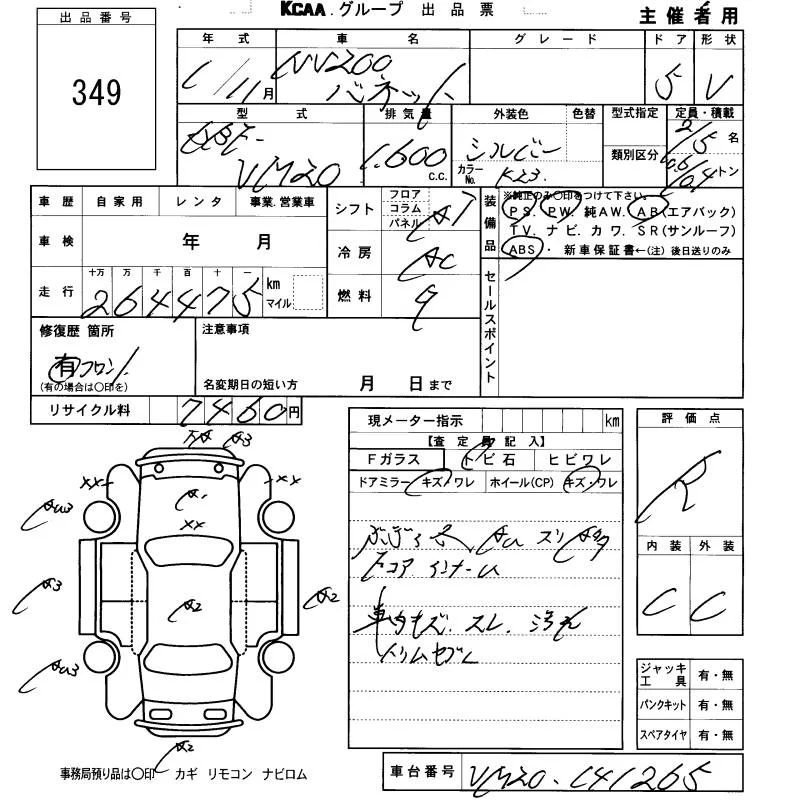 KCAA.グループ 出品票
主催者用
出品番号
349
年式 車名 グレード ドア 形状
/11月 NV200 バネット 5 V
型式 排気量 外装色 色替 型式指定 定員・積載
類別区分
VM20 1,600 c.c. シルバー 2/5名
カラーNo. K23 トン
車歴 自家用 レンタ 事業.営業車
車検 年 月
走行 十万 万 千 百 十 一
264475 km マイル
シフト フロア コラム パネル AT
冷房 AC
燃料
装備品 ※純正のみ〇印をつけて下さい。
PS. PW. 純AW. AB(エアバック)
TV. ナビ. カワ. SR(サンルーフ)
ABS・ 新車保証書←(注) 後日送りのみ
セールスポイント
修復歴 箇所
有 フロント
(有の場合は〇印を)
注意事項
名変期日の短い方 月 日まで
リサイクル料 7460円
現メーター指示 km
【査定員記入】
Fガラス トビ石 ヒビワレ
ドアミラー キズ/ワレ ホイール(CP) キズ・ワレ
評価点
R
内装 外装
C C
A3
XX XX
A1
XX
A3
A2 A2
A2
車内キズ. スレ. 汚れ
ジャッキ工具 有・無
パンクキット 有・無
スペアタイヤ 有・無
事務局預り品は〇印 カギ リモコン ナビロム
車台番号 VM20-141265